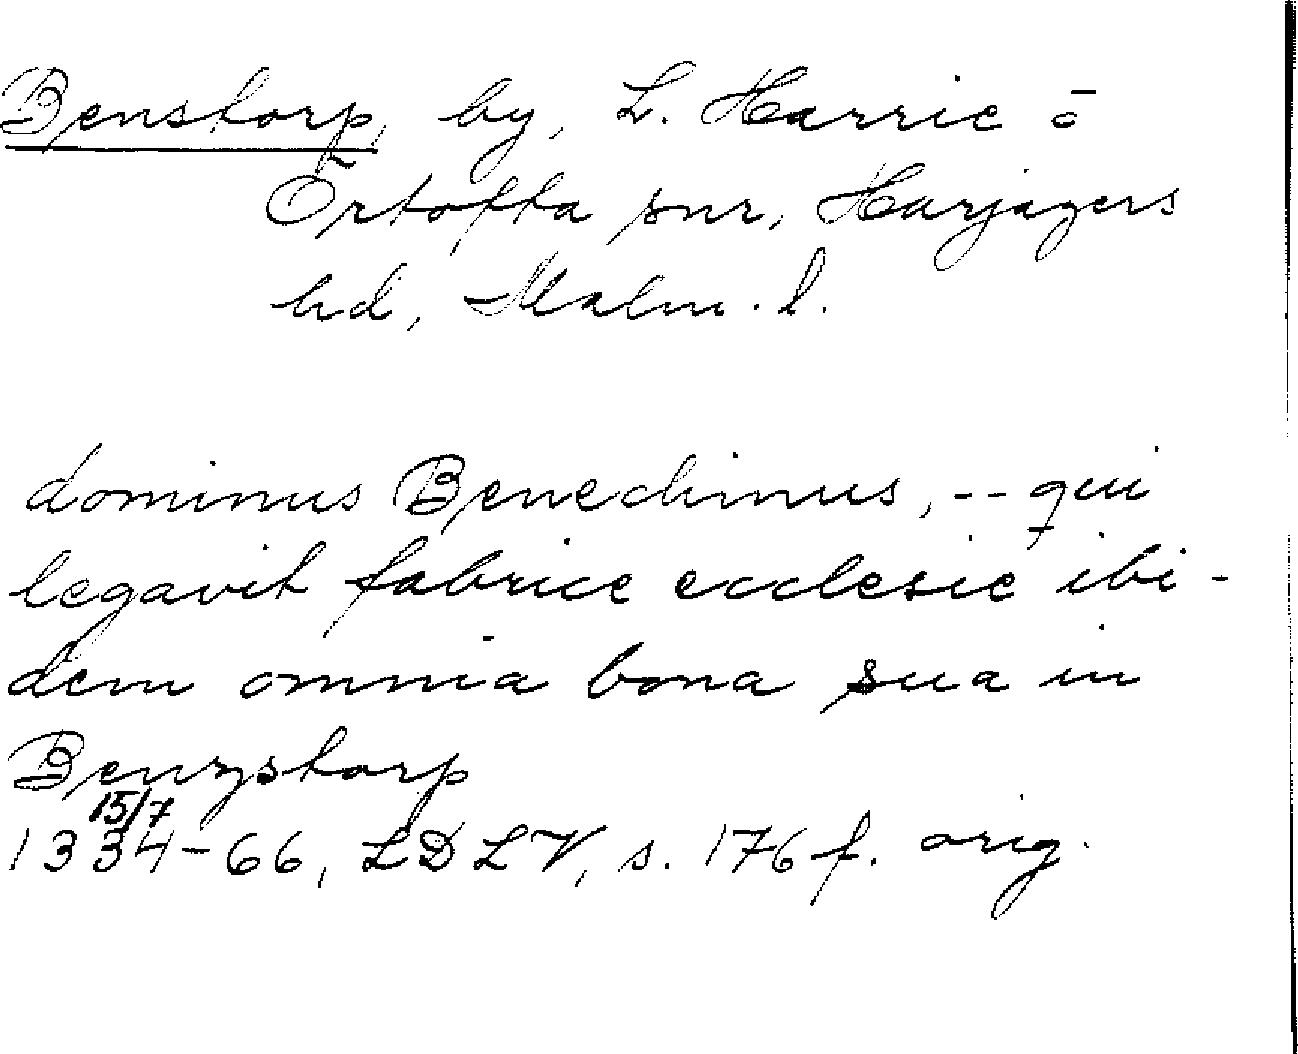 Benstorp, by, L. Harrie o
Örtofta snr, Harjagers
hd, Malm. l.
dominus Benedimus, -- qui
legavit fabrice ecclesie ibi-
dem omnia bona sua in
Benzstorp
15/7
1334-66, LDLV, s. 176 f. orig.